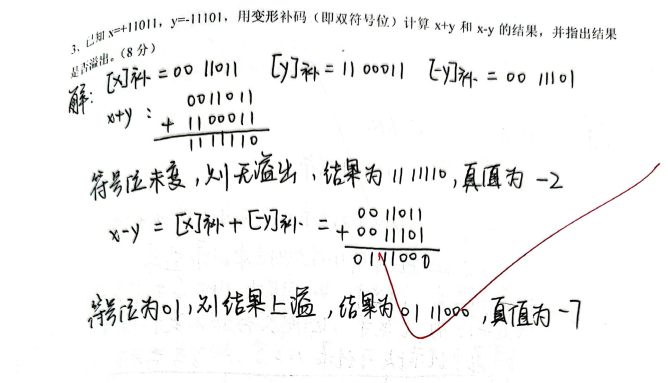 3、已知 x=+11011，y=-11101，用变形补码（即双符号位）计算 x+y 和 x-y 的结果，并指出结果
是否溢出。（8 分）
解: [x]补 = 00 11011 [y]补 = 11 00011 [-y]补 = 00 11101
x+y : 0011011
+ 1100011
1111110
符号位未变，则无溢出，结果为 11 11110，真值为 -2
x-y = [x]补 + [-y]补 = 0011011
+ 0011101
0111000
符号位为01，则结果上溢，结果为 01 11000，真值为 -7